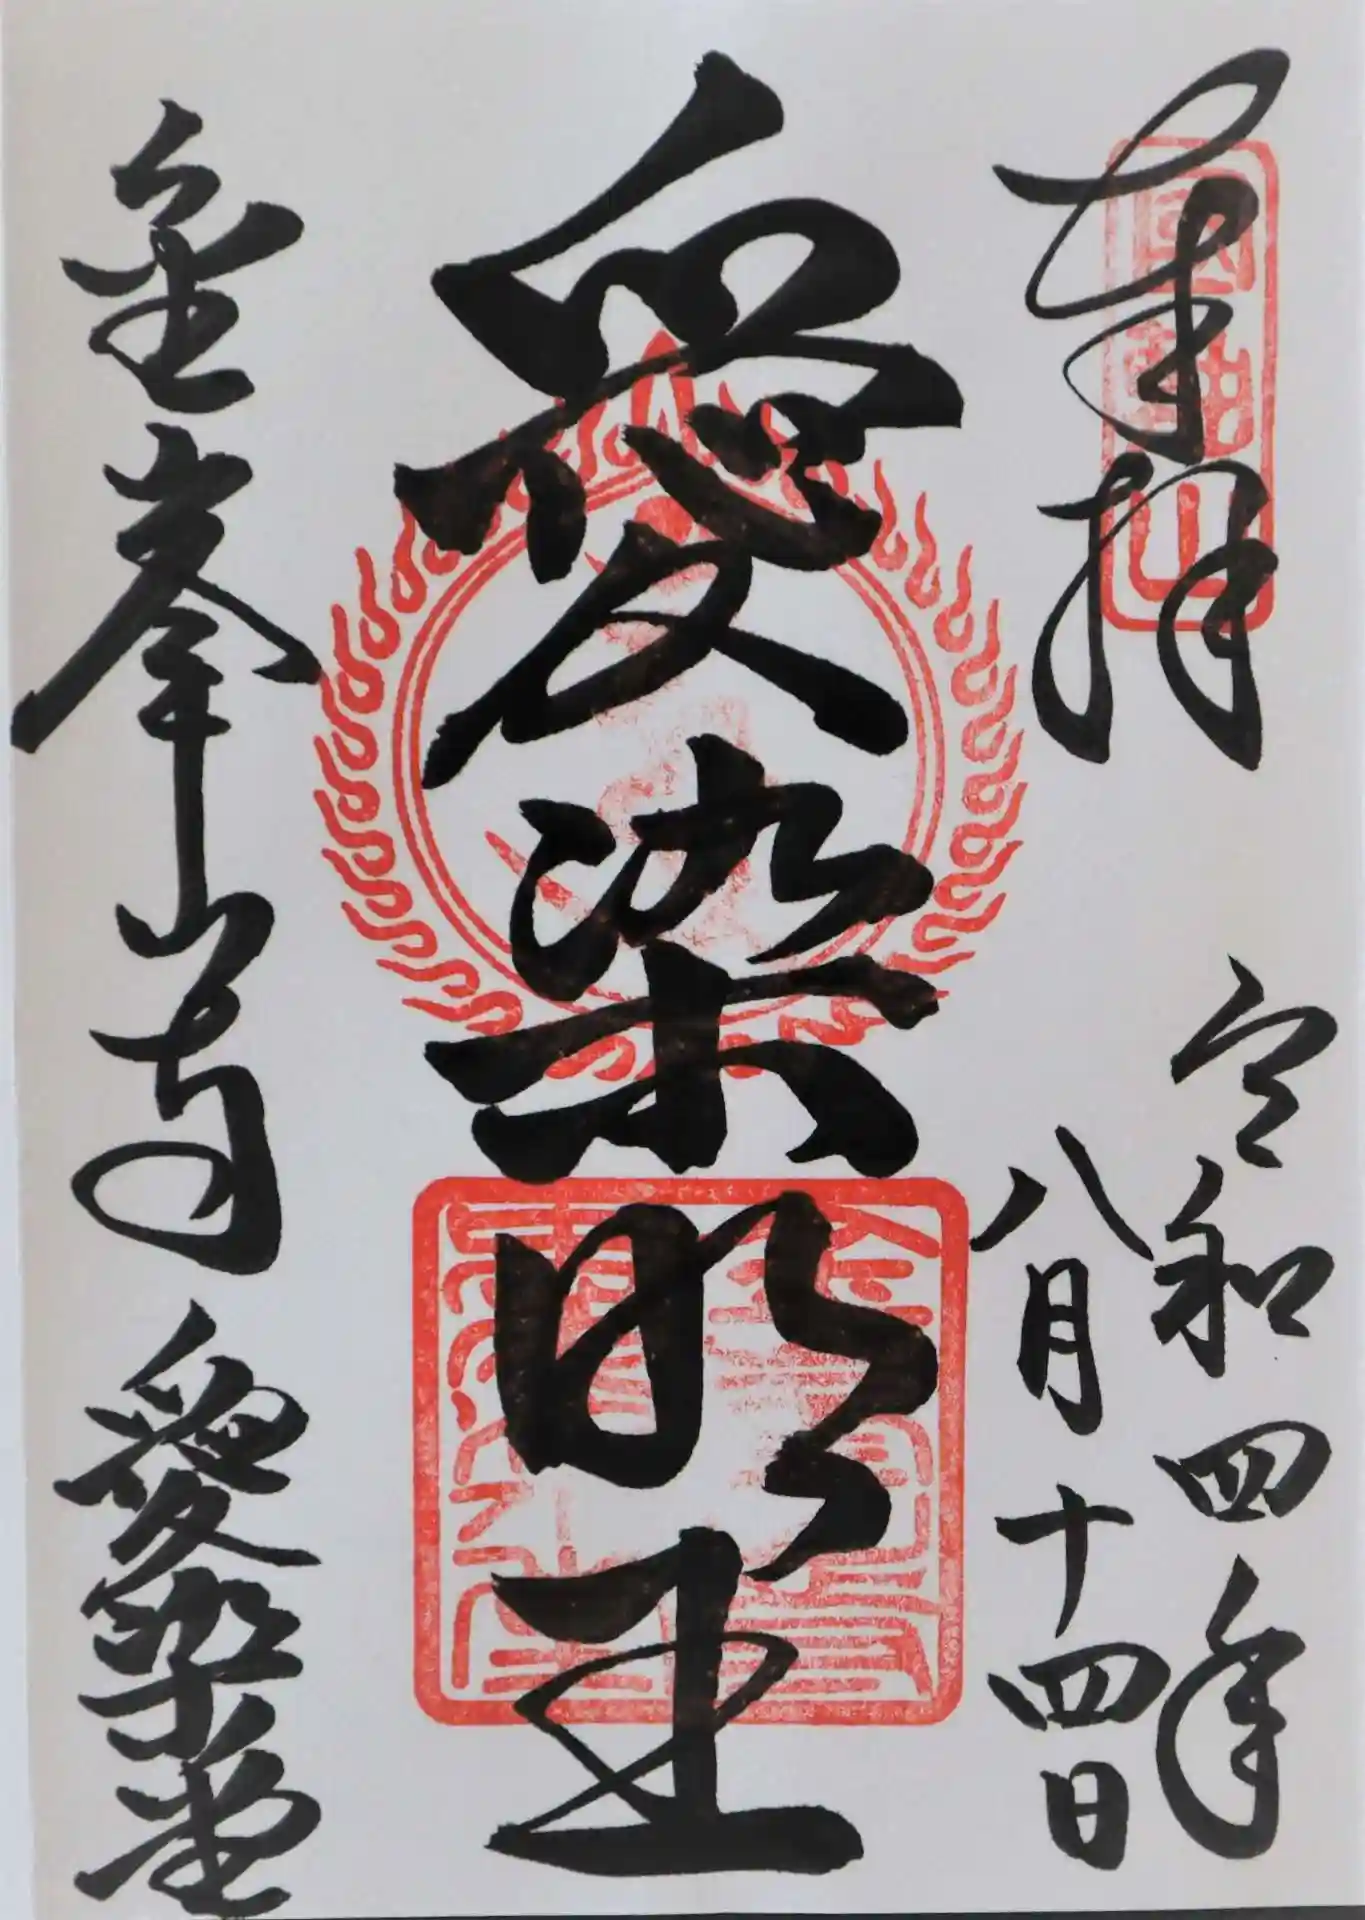 奉拝
國軸山
令和四年
八月十四日
愛染明王
金峯山寺 愛染堂